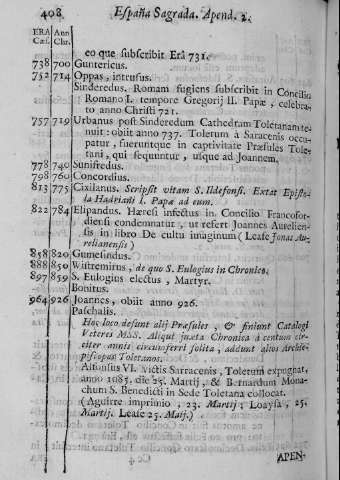 408 España Sagrada. Apend. 2.
ERA Cæs. Ann Chr.
eo que subscribit Erâ 731.
738 700 Guntericus.
752 714 Oppas, intrusus.
Sinderedus. Romam fugiens subscribit in Concilio
Romano I. tempore Gregorij II. Papæ, celebra-
to anno Christi 721.
757 719 Urbanus post Sinderedum Cathedram Toletanam te-
nuit: obiit anno 737. Toletum à Saracenis occu-
patur, fueruntque in captivitate Præsules Tole-
tani, qui sequuntur, usque ad Joannem.
778 740 Sunifredus.
798 760 Concordius.
813 775 Cixilanus. Scripsit vitam S. Ildefonsi. Extat Episto-
la Hadriani I. Papæ ad eum.
822 784 Elipandus. Hæresi infectus in Concilio Francofor-
diensi condemnatur, ut refert Joannes Aurelien-
sis in libro De cultu imaginum (Lease Jonas Au-
relianensis)
858 820 Gumesindus.
888 850 Wistremirus, de quo S. Eulogius in Chronico.
897 859 S. Eulogius electus, Martyr.
Bonitus.
964 926 Joannes, obiit anno 926.
Paschalis.
Hoc loco desunt alij Præsules, & finiunt Catalogi
Veteres MSS. Aliqui juxta Chronica à centum cir-
citer annis circumferri solita, addunt alios Archie-
piscopos Toletanos.
Alfonsus VI. victis Sarracenis, Toletum expugnat,
anno 1085. die 25. Martij, & Bernardum Mona-
chum S. Benedicti in Sede Toletana collocat.
(Aguirre imprimio, 23. Martij: Loaysa, 25.
Martij. Lease 25. Maij.)
Cc
APEN-